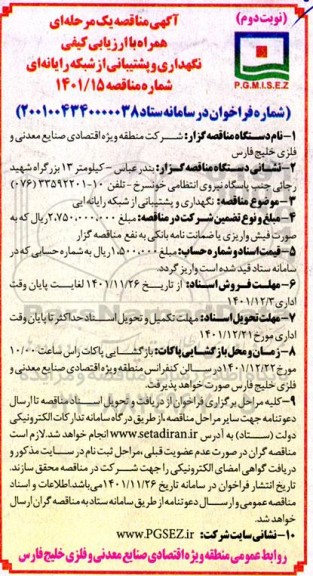 (نوبت دوم)
آگهی مناقصه یک مرحله ای
همراه با ارزیابی کیفی
نگهداری و پشتیبانی از شبکه رایانه ای
شماره مناقصه ۱۴۰۱/۱۵
P.G.M.I.S.E.Z
(شماره فراخوان در سامانه ستاد ۲۰۰۱۰۰۴۳۴۰۰۰۰۰۳۸)
۱-نام دستگاه مناقصه گزار: شرکت منطقه ویژه اقتصادی صنایع معدنی و
فلزی خلیج فارس
۲-نشانی دستگاه مناقصه گزار: بندرعباس - کیلومتر ۱۳ بزرگراه شهید
رجائی جنب پاسگاه نیروی انتظامی خونسرخ - تلفن ۱۰-۳۳۵۹۲۲۰۱ (۰۷۶)
۳-موضوع مناقصه: نگهداری و پشتیبانی از شبکه رایانه ایی
۴-مبلغ و نوع تضمین شرکت در مناقصه: مبلغ ۲.۷۵۰.۰۰۰.۰۰۰ ریال که به
صورت فیش واریزی یا ضمانت نامه بانکی به نفع مناقصه گزار
۵-قیمت اسناد و شماره حساب: مبلغ ۱.۵۰۰.۰۰۰ ریال به شماره حسابی که در
سامانه ستاد قید شده است واریز گردد.
۶-مهلت فروش اسناد: از تاریخ ۱۴۰۱/۱۱/۲۶ لغایت پایان وقت
اداری ۱۴۰۱/۱۲/۳
۷-مهلت تحویل اسناد: مهلت تکمیل و تحویل اسناد حداکثر تا پایان وقت
اداری مورخ ۱۴۰۱/۱۲/۲۱
۸-زمان و محل بازگشایی پاکات: بازگشایی پاکات راس ساعت ۱۰/۰۰
مورخ ۱۴۰۱/۱۲/۲۲ در سالن کنفرانس منطقه ویژه اقتصادی صنایع معدنی و
فلزی خلیج فارس صورت خواهد پذیرفت.
۹-کلیه مراحل برگزاری فراخوان از دریافت و تحویل اسناد مناقصه تا ارسال
دعوتنامه جهت سایر مراحل مناقصه، از طریق درگاه سامانه تدارکات الکترونیکی
دولت (ستاد) به آدرس www.setadiran.ir انجام خواهد شد. لازم است
مناقصه گران در صورت عدم عضویت قبلی، مراحل ثبت نام در سایت مذکور و
دریافت گواهی امضای الکترونیکی را جهت شرکت در مناقصه محقق سازند.
تاریخ انتشار فراخوان در سامانه تاریخ ۱۴۰۱/۱۱/۲۶ می باشد. اطلاعات و اسناد
مناقصه عمومی و ارسال دعوتنامه از طریق سامانه ستاد به مناقصه گران ارسال
خواهد شد.
۱۰-نشانی سایت شرکت: www.PGSEZ.ir
روابط عمومی منطقه ویژه اقتصادی صنایع معدنی و فلزی خلیج فارس